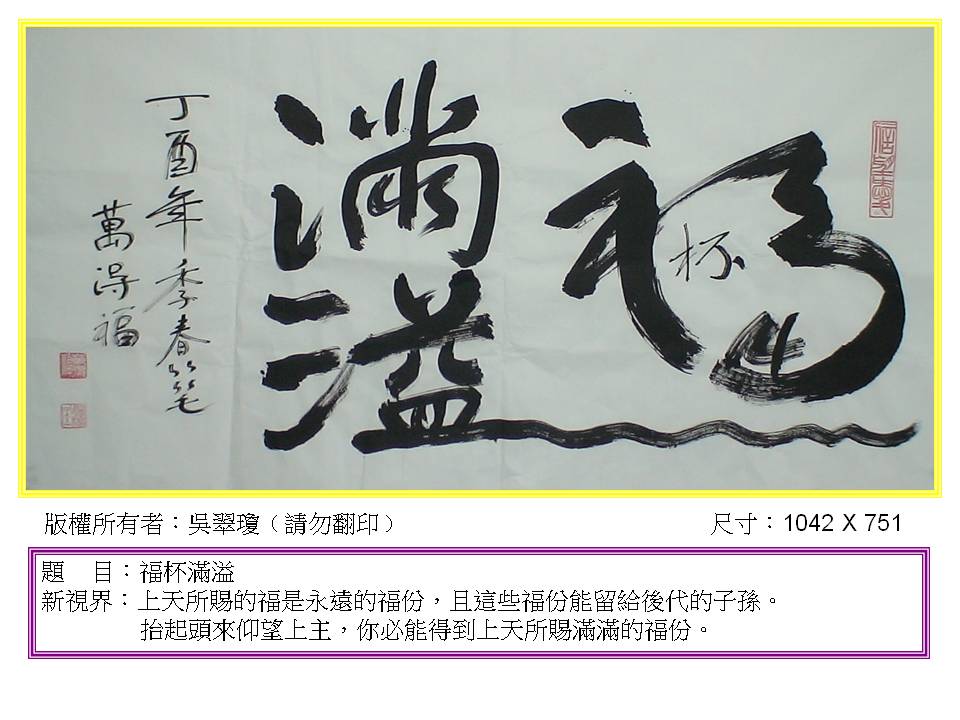 福
杯
滿溢
丁酉年季春笔
萬得福
版權所有者：吳翠瓊（請勿翻印）
尺寸：1042 X 751
題　目：福杯滿溢
新視界：上天所賜的福是永遠的福份，且這些福份能留給後代的子孫。
抬起頭來仰望上主，你必能得到上天所賜滿滿的福份。